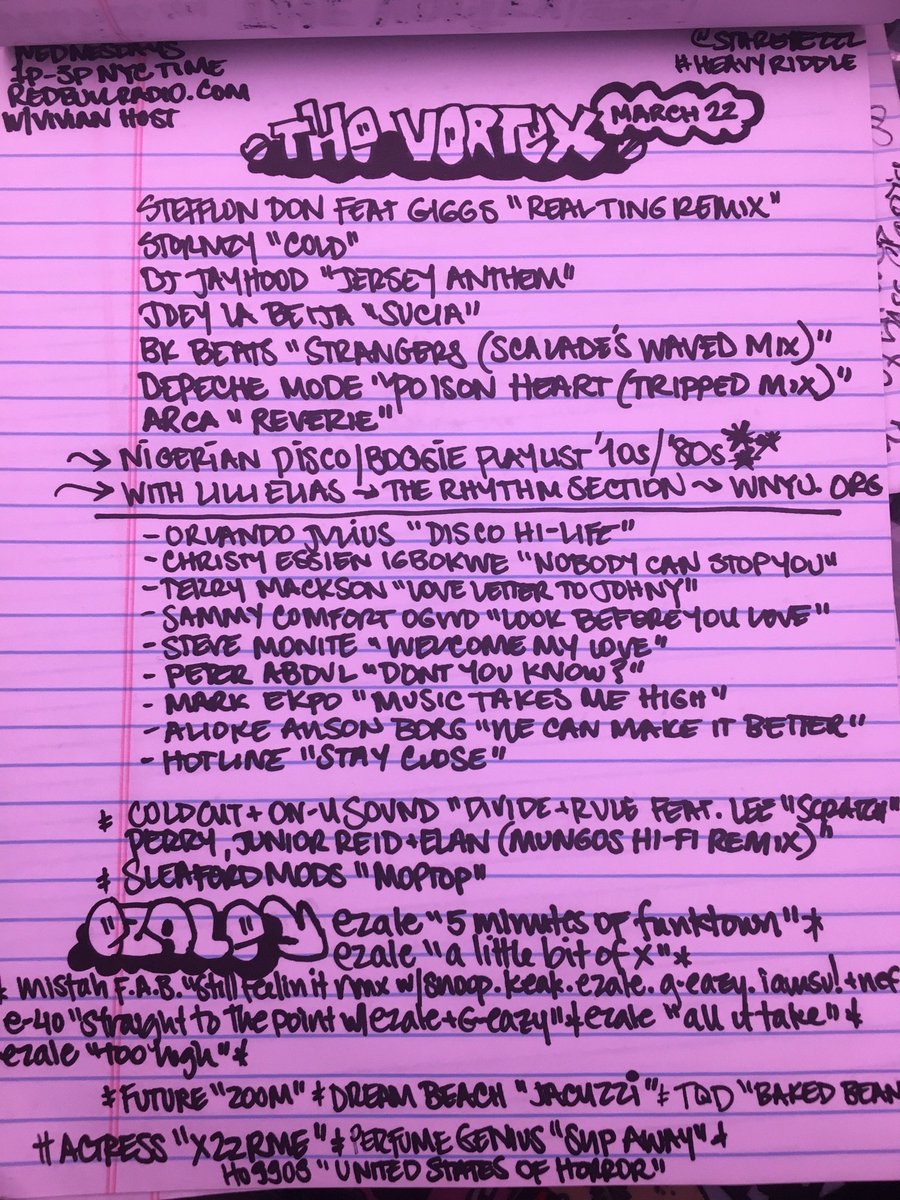 WEDNESDAYS
1P-3P NYC TIME
REDBULLRADIO.COM
W/VIVIAN HOST
@STAREYEZZL
#HEAVYRIDDLE
THE VORTEX
MARCH 22
STEFFLON DON FEAT GIGGS "REAL TING REMIX"
STORMZY "COLD"
DJ JAYHOOD "JERSEY ANTHEM"
JOEY LA BEIJA "SUCIA"
BK BEATS "STRANGERS (SCALADE'S WAVED MIX)"
DEPECHE MODE "POISON HEART (TRIPPED MIX)"
ARCA "REVERIE"
→ NIGERIAN DISCO/BOOGIE PLAYLIST '10s/'80s ***
→ WITH LILLI ELIAS → THE RHYTHM SECTION → WNYU.ORG
- ORLANDO JULIUS "DISCO HI-LIFE"
- CHRISTY ESSIEN IGBOKWE "NOBODY CAN STOP YOU"
- TERRY MACKSON "LOVE LETTER TO JOHNY"
- SAMMY COMFORT OGWD "LOOK BEFORE YOU LOVE"
- STEVE MONITE "WELCOME MY LOVE"
- PETER ABDUL "DONT YOU KNOW?"
- MARK EKPO "MUSIC TAKES ME HIGH"
- ALIOKE ANSON BORG "WE CAN MAKE IT BETTER"
- HOTLINE "STAY CLOSE"
* COLDCUT + ON-U SOUND "DIVIDE + RULE FEAT. LEE "SCRATCH"
PERRY, JUNIOR REID + ELAN (MUNGOS HI-FI REMIX)"
* SLEAFORD MODS "MOPTOP"
EZALEY
ezale "5 minutes of funktown" *
ezale "a little bit of x" *
* mistah F.A.B. "still feelin it rmx w/snoop.keak.ezale.g-eazy.iamsu!+nef
e-40 "straight to the point w/ezale+G-eazy" * ezale "all it take" *
ezale "too high" *
* FUTURE "ZOOM" * DREAM BEACH "JACUZZi" * TQD "BAKED BEAN
# ACTRESS "X22RME" * PERFUME GENIUS "SLIP AWAY" *
HO99O9 "UNITED STATES OF HORROR"